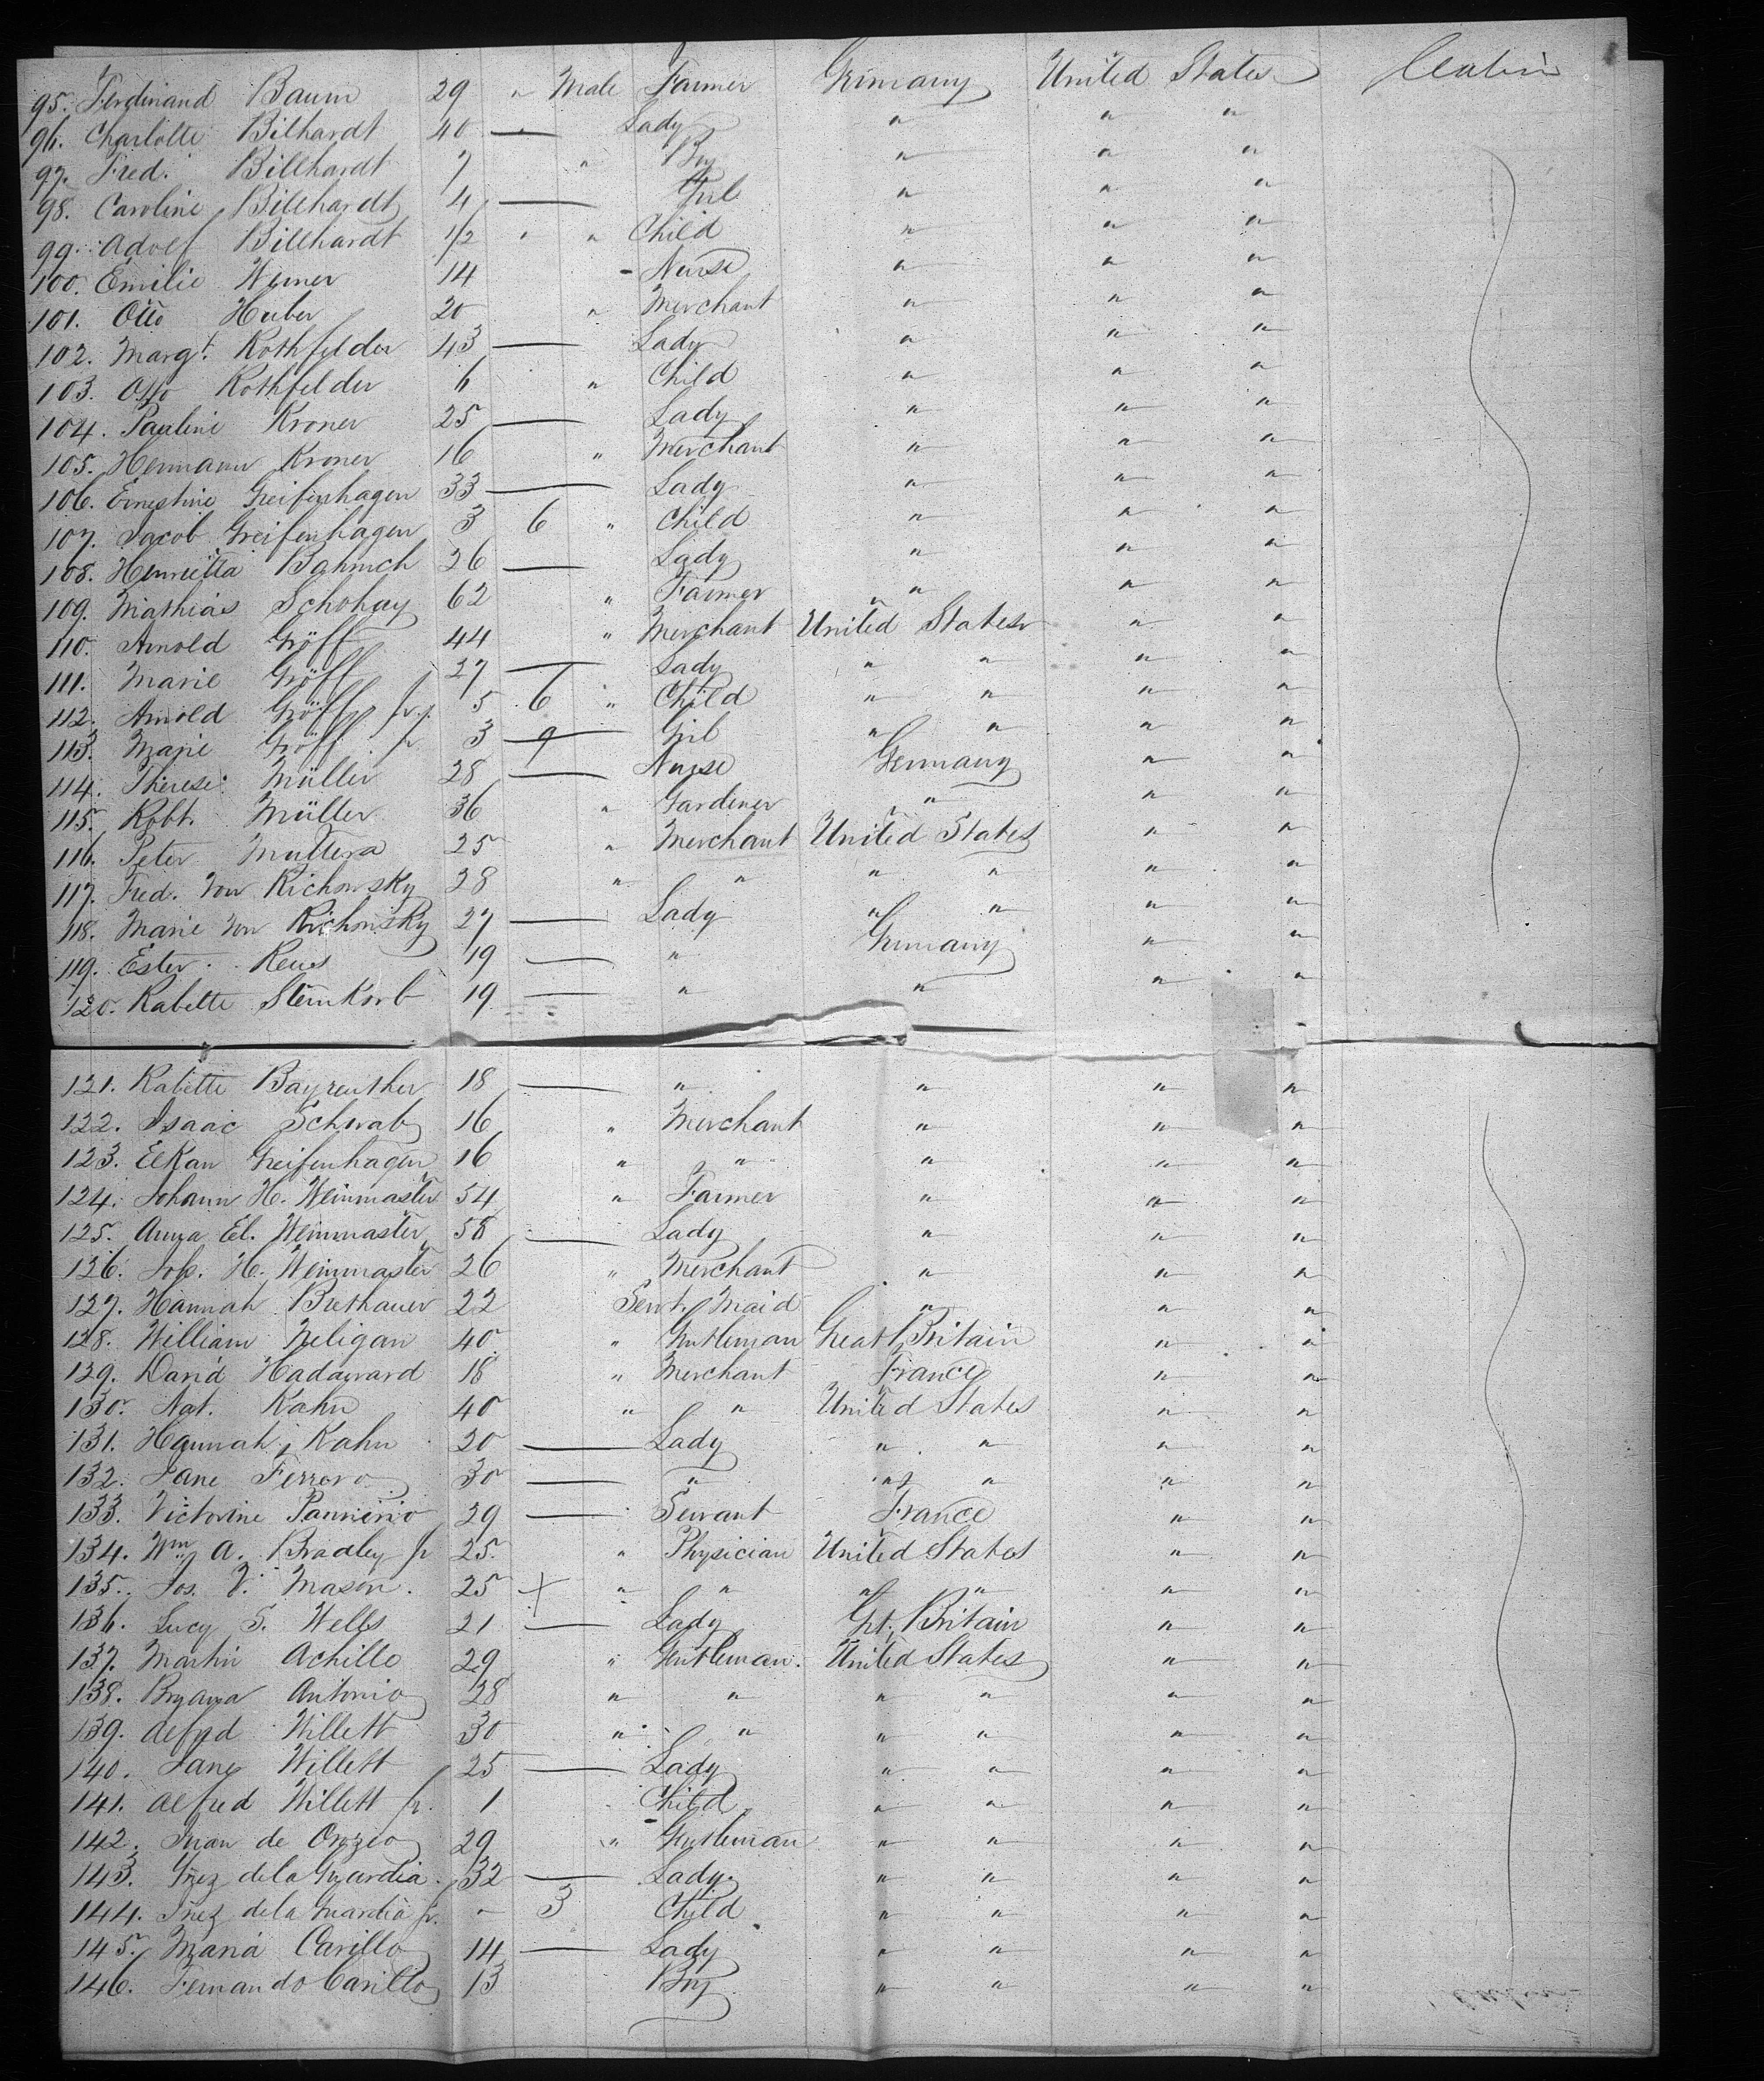 95. Ferdinand Baum 29 " Male Farmer Germany United States Cabin
96. Charlotte Bilhardt 40 — Lady " " "
97. Fred. Billhardt 7 " Boy " " "
98. Caroline Billhardt 4 — Girl " " "
99. Adolf Billhardt 1/2 " " Child " " "
100. Emilie Werner 14 - Nurse " " "
101. Otto Huber 20 " Merchant " " "
102. Margt. Rothfelder 43 — Lady " " "
103. Otto Rothfelder 6 " Child " " "
104. Pauline Kroner 25 — Lady " " "
105. Hermann Kroner 16 " Merchant " " "
106. Ernestine Greifenhagen 33 — Lady " " "
107. Jacob Greifenhagen 3 6 " Child " " "
108. Henrietta 26 — Lady " " "
109. Mathias Schohay 62 " Farmer " " "
110. Arnold Gröff 44 " Merchant United States " "
111. Marie Gröff 27 — Lady " " " "
112. Arnold Gröff jr. 5 6 " Child " " " "
113. Marie Gröff jr 3 9 Girl " " " "
114. Therese Müller 28 — Nurse Germany " "
115. Robt. Müller 36 " Gardener " " "
116. Peter Muttera 25 " Merchant United States " "
117. Fred. von Richowsky 28 " " " " " "
118. Marie von Richowsky 27 — Lady " " " "
119. Ester Reus 19 — " Germany " "
120. Rabette Steinkorb 19 — " " " "
121. Rabette Bayreuther 18 — " " " "
122. Isaac Schwab 16 " Merchant " " "
123. Elkan Greifenhagen 16 " " " " "
124. Johann H. Weinmaster 54 " Farmer " " "
125. Anna El. Weinmaster 58 — Lady " " "
126. Joh. H. Weinmaster 26 " Merchant " " "
127. Hannah Buthauer 22 Servt. Maid " " "
128. William Neligan 40 " Gentleman Great Britain " "
129. David Hadamard 18 " Merchant France " "
130. Nat. Kahn 40 " " United States " "
131. Hannah Kahn 20 — Lady " " " "
132. Jane Ferrero 30 — " " " " "
133. Victorine 29 — Servant France " "
134. Wm. A. Bradley jr 25 " Physician United States " "
135. Jos. V. Mason. 25 + " " " " " "
136. Lucy S. Wells 21 — Lady Gt. Britain " "
137. Martin Achille 29 " Gentleman. United States " "
138. Antonio 28 " " " " " "
139. Alfred Willett 30 " " " " " "
140. Jane Willett 25 — Lady " " " "
141. Alfred Willett jr. 1 Child " " " "
142. Juan de Orozco 29 " Gentleman " " " "
143. Ynez de la Guardia. 32 — Lady. " " " "
144. Ynez de la Guardia jr. - 3 Child " " " "
145. Maria Carillo 14 — Lady " " " "
146. Fernando Carillo 13 Boy " " " "